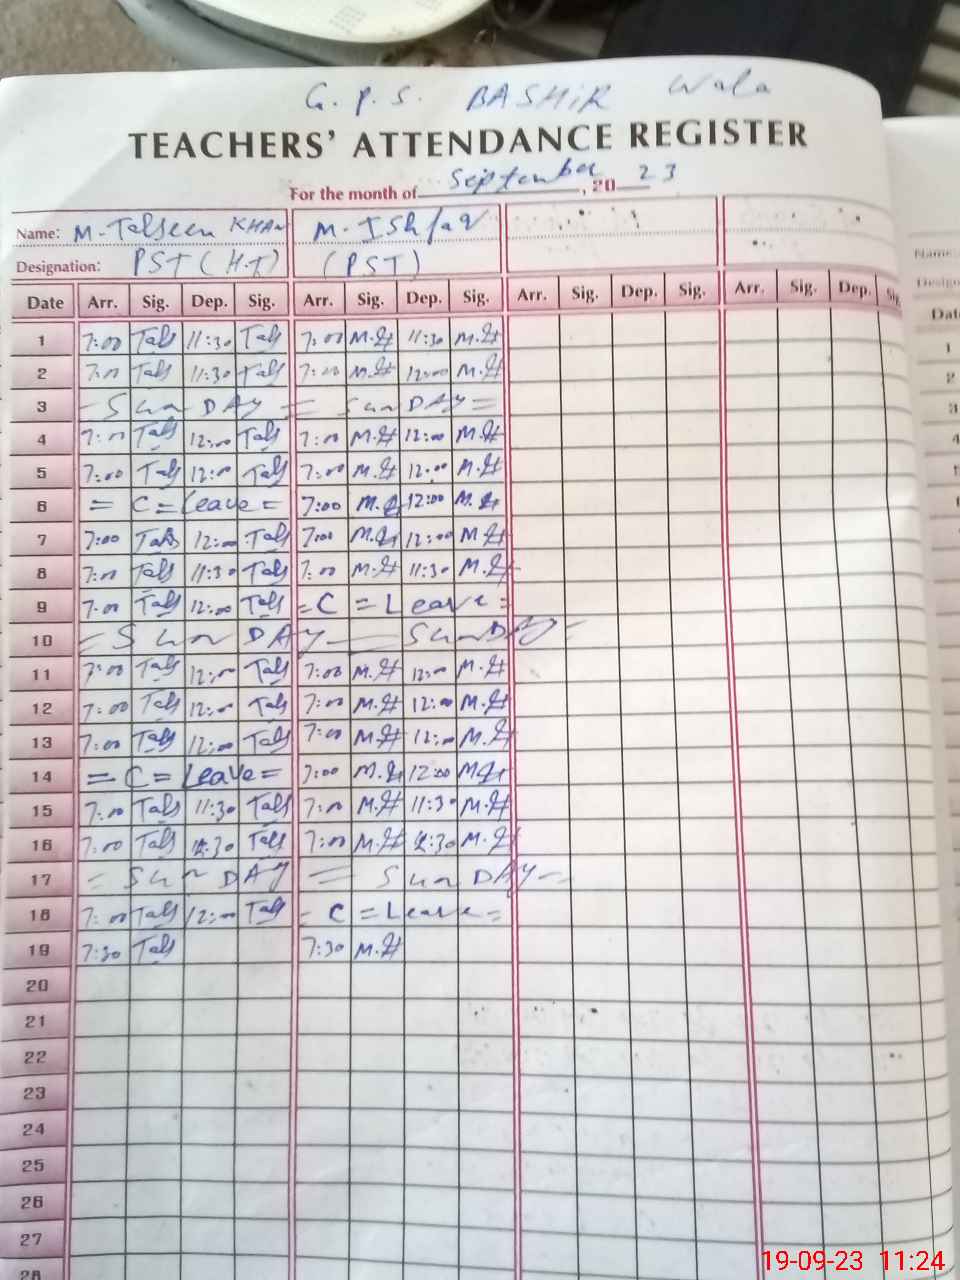 G.P.S. BASHIR Wala
TEACHERS' ATTENDANCE REGISTER
For the month of September, 20 23
Name: M. Talseen KHAN M. Ishfaq
Designation: PST (H.T) (PST)
Date Arr. Sig. Dep. Sig. Arr. Sig. Dep. Sig. Arr. Sig. Dep. Sig. Arr. Sig. Dep. Sig.
1 7:00 Tals 11:30 Tals 7:00 11:30
2 7:00 Tals 11:30 Tals 7:00 12:00
3 - Sun DAY = = Sun DAY =
4 7:00 Tals 12:00 Tals 7:00 12:00
5 7:00 Tals 12:00 Tals 7:00 12:00
6 = C = Leave = 7:00 12:00
7 7:00 Tals 12:00 Tals 7:00 12:00
8 7:00 Tals 11:30 Tals 7:00 11:30
9 7:00 Tals 12:00 Tals = C = Leave =
10 = Sun DAY — Sun DAY =
11 7:00 Tals 12:00 Tals 7:00 12:00
12 7:00 Tals 12:00 Tals 7:00 12:00
13 7:00 Tals 12:00 Tals 7:00 12:00
14 = C = Leave = 7:00 12:00
15 7:00 Tals 11:30 Tals 7:00 11:30
16 7:00 Tals Tals 7:00
17 = Sun DAY = Sun DAY =
18 7:00 Tals 12:00 Tals = C = Leave =
19 7:30 Tals 7:30
20
21
22
23
24
25
26
27
28
Name:
Dat
1
2
3
4
19-09-23 11:24